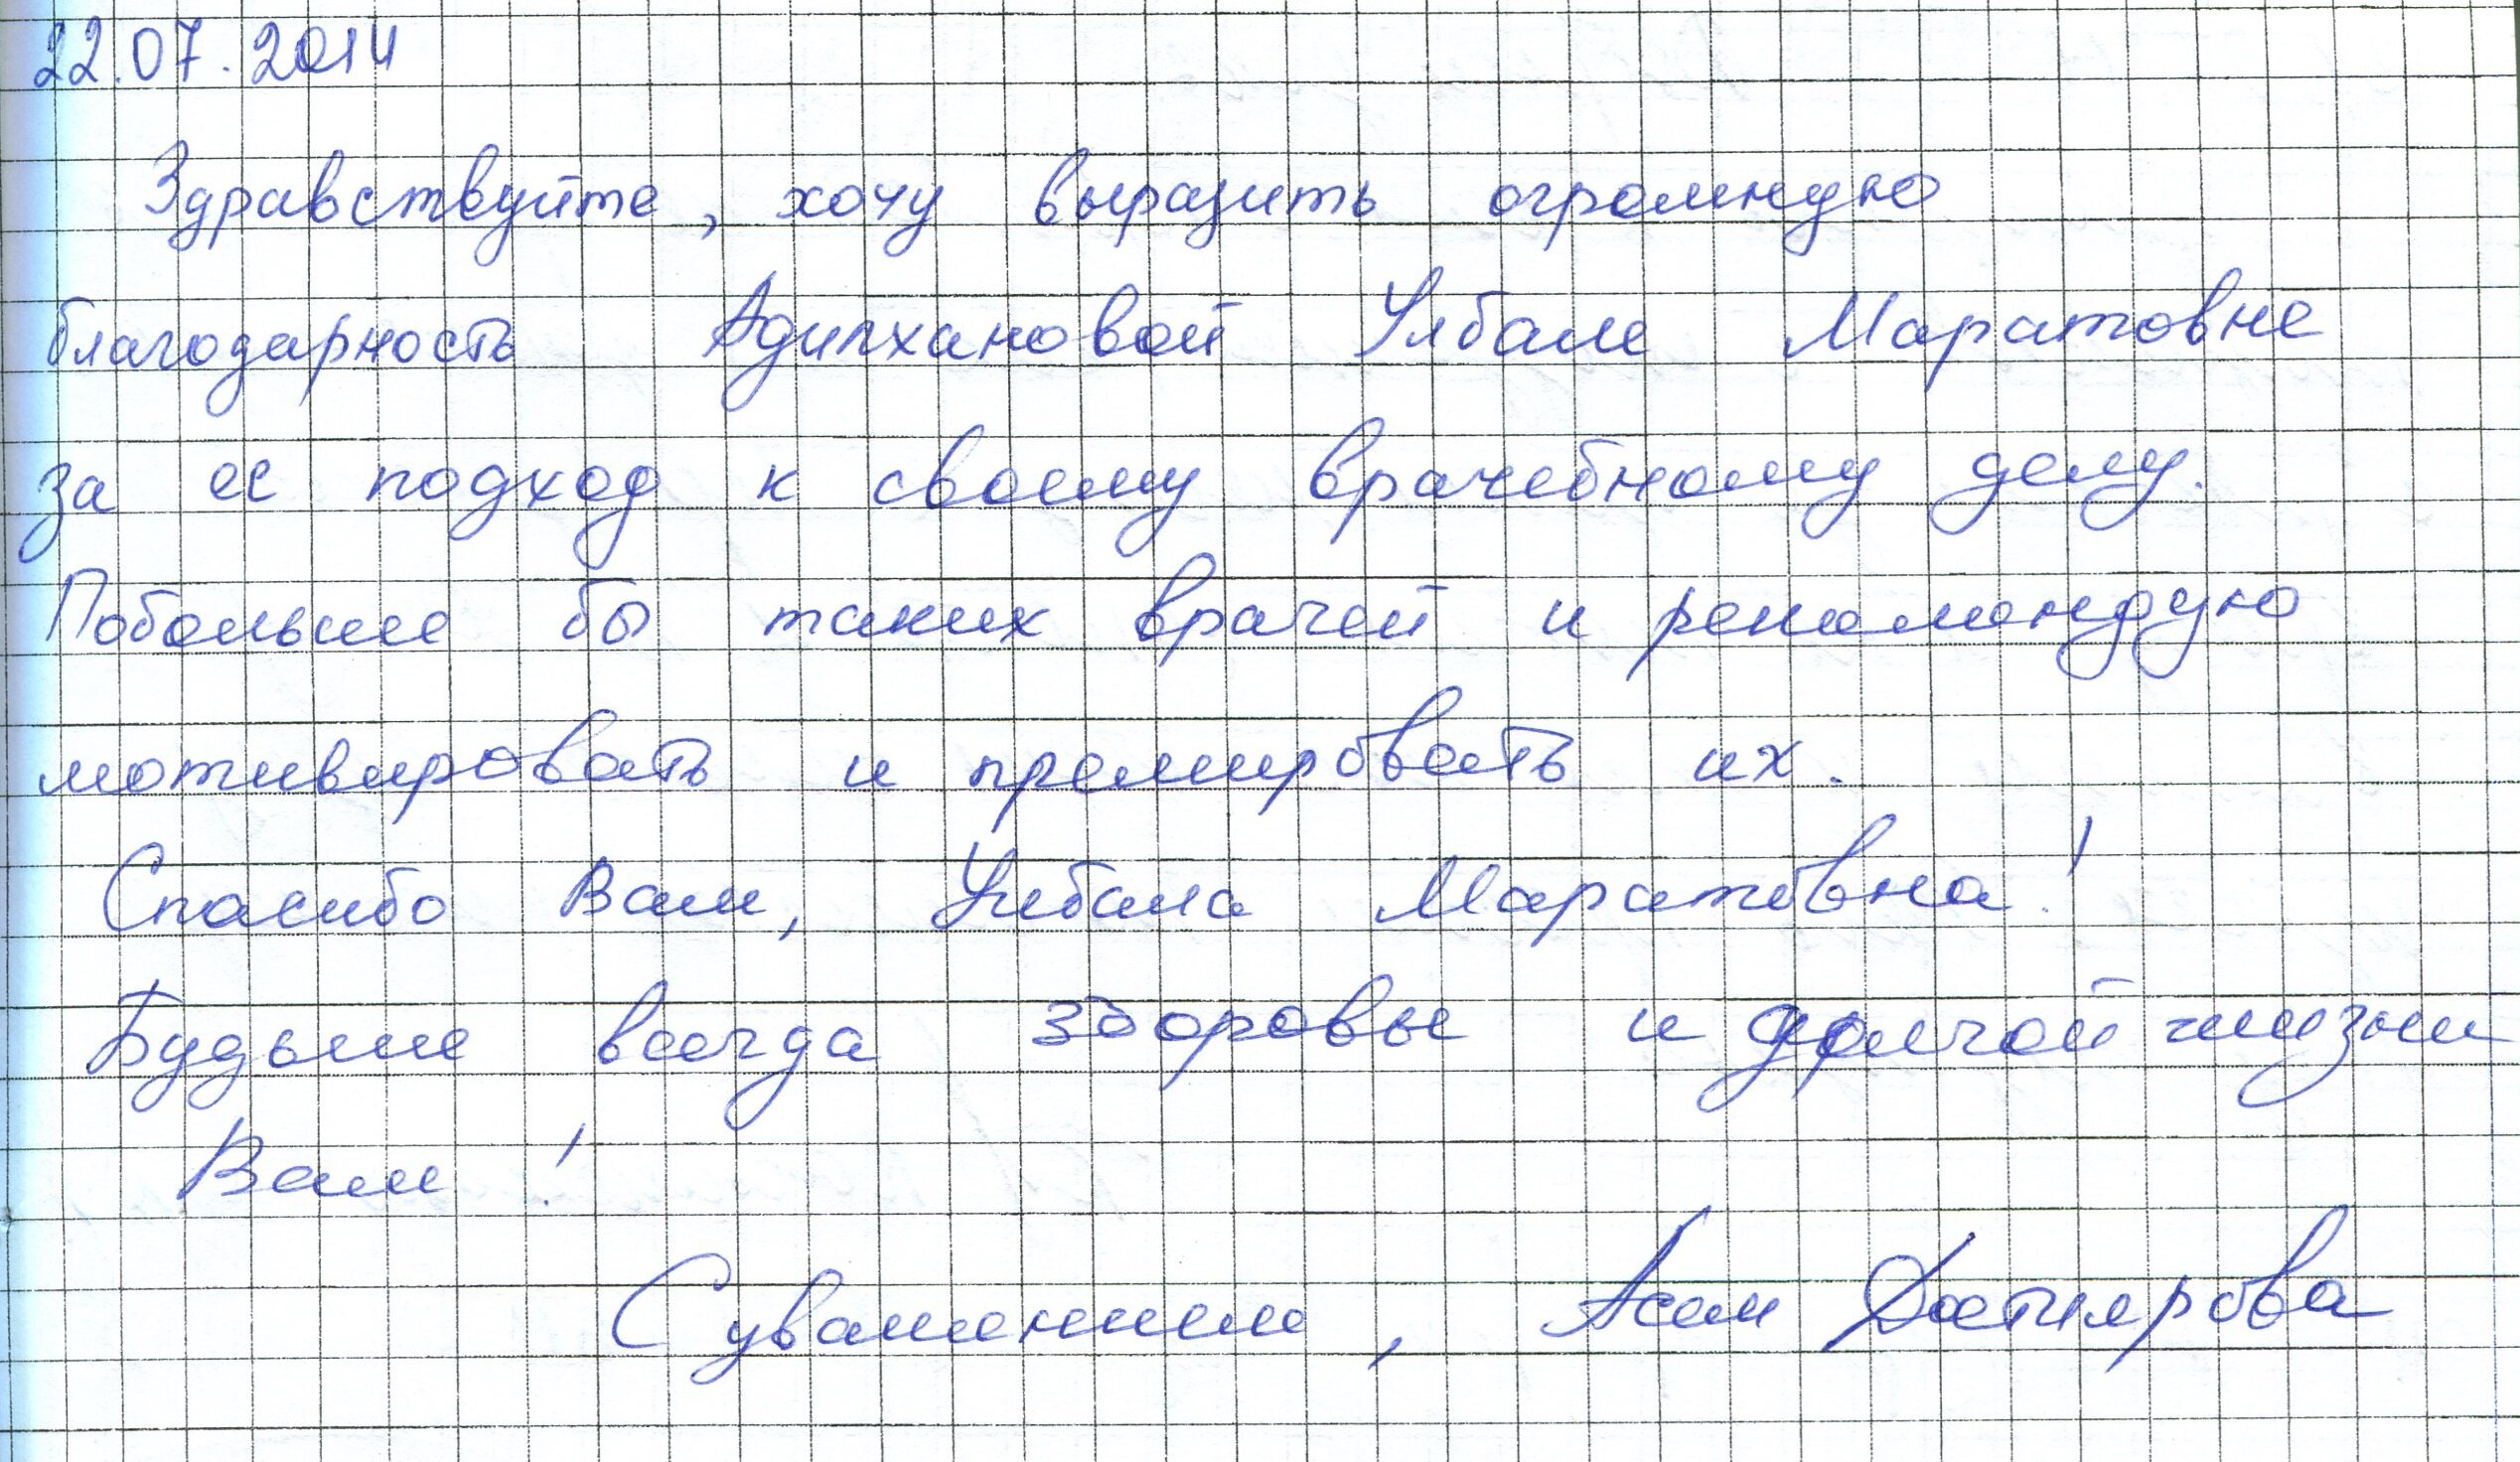 22.07.2014
Здравствуйте, хочу выразить огромную
благодарность Адилхановой Улбале Маратовне
за ее подход к своему врачебному делу.
Побольше бы таких врачей и рекомендую
мотивировать и премировать их.
Спасибо Вам, Улбала Маратовна!
Будьте всегда здоровы и долгой жизни
Вам!
С уважением, Асем